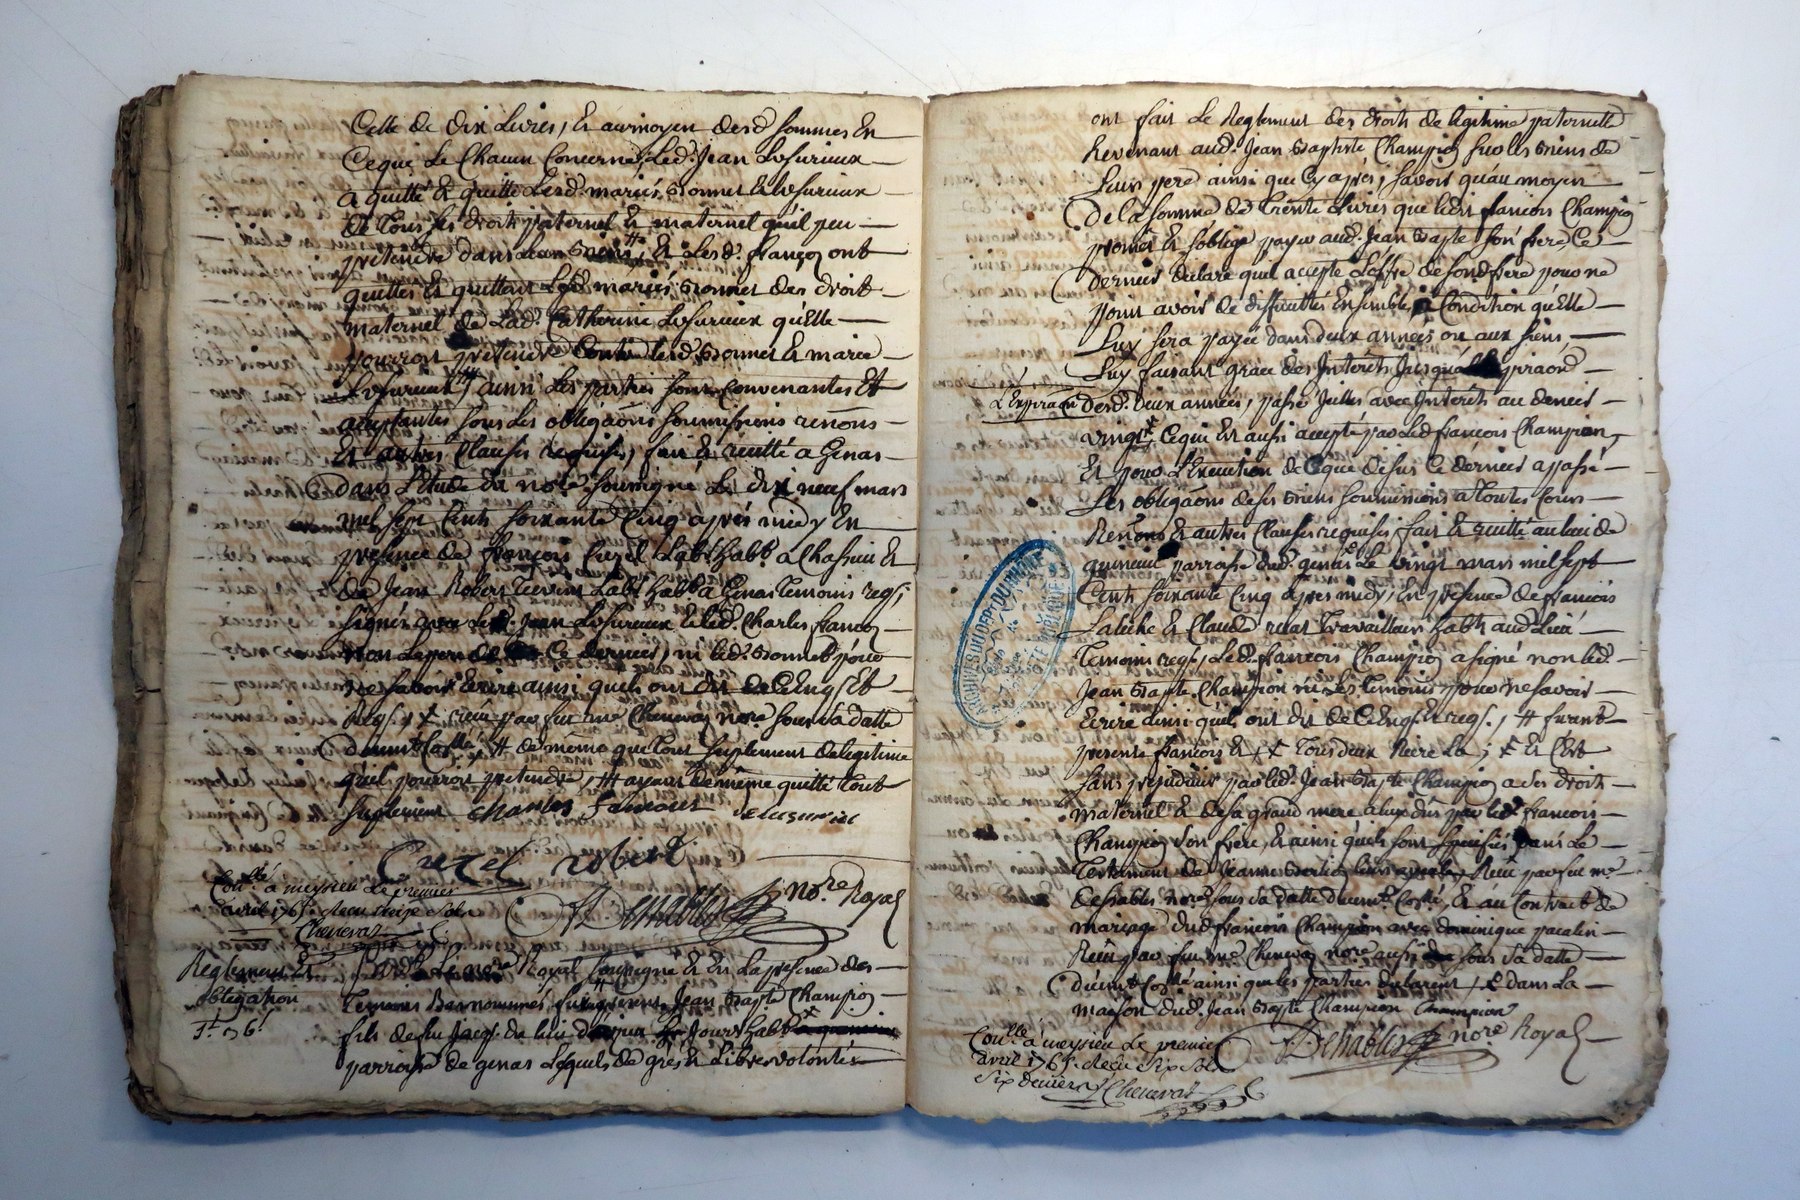 Celle de dix Livres, Et aumoyen desd. sommes En
Cequi Le Chacun Concerne, Led. Jean Lusurieux
a quitté Et quitte Lesd. mariés Bonnet Et Lusurieux
de Tous les droits paternel Et maternel quil peu
pretendre dans Leur Biens, # Et Lesd. françois ont
quittés Et quittent Lesd. mariés Bonnet des droit
maternel de Lad. Catherine Lusurieux quElle
pourroit pretendre Contre lesd. Bonnet Et mariée
Lusurieux # ainsi Les parties sont Convenantes Et
acceptantes sous Les obligaons soumissions renons
Et autres Clauses requises, fait Et recitté a Genas
dans L'Etude du nore. soussigné Le dix neuf mars
mil sept Cents soixante Cinq après midy En
presence de françois Curzel Labr. habt. a Chassieu Et
de Jean Robert Labt. habt. a Genas Temoins reqs.
signés avec Led. Jean Lusurieux Et led. Charles françois
non Ce dernier, ni led. Bonnet pour
ne savoir Ecrire ainsi quels ont dit de Ce Enqs. Et
Reqs. , X reçu par feu me Chenevas nore sous Sa datte
duemt. Collé, # de même que tout suplement de legitime
quil pourroit pretendre, # ayant de même quitté tout
suplement Charles Francois Jelusurieu
Curzel robert
Conllé a meysieu Le premier
avril 1765. Recu seize Sols
Chenevas
Denables nore Royal
Reglement Et
obligation
Pardt. Le nore Royal soussigné Et En La presence des
Temoins Basnommés, furent presents Jean Bapte Champion
fils de feu Jacqs. du lieu dazieu
parroisse de genas Lesquels de gré & Libres volontés
ont fait Le Reglement des droits de legitime paternelle
Revenant aud. Jean Baptiste Champion sur les Biens de
Leur pere ainsi que Cy après, savoir quau moyen
De la somme de Trente Livres que ledit françois Champion
promet Et soblige payer aud. Jean Bapte son frere Ce
dernier declare quil accepte Loffre de sond frere pour ne
point avoir de difficultés Ensemble, a Condition quElle
Luy sera payée dans deux années ou aux siens,
Luy faisant grace des Interets Jusqua
L'Expiraon desd. deux années, passé Icelles avec Interets au denier
vingt, X Cequi Est aussi accepté par Led françois Champion,
Et pour L'Execution de Ceque dessus Ce dernier a passé
Les obligaons de ses Biens soumissions a toutes Cours
Renons & autres Clauses requises fait & recitté au lieu de
quineuil parroisse dud. genas Le vingt mars mil sept
Cents soixante Cinq après midy, En presence de françois
Laleche & Claude Travailleurs habts aud Lieu
Temoins reqs., Led. françois Champion a signé non led.
Jean Bapte Champion ni Les Temoins pour ne savoir
Ecrire ainsi quils ont dit de Ce Enqs. Et reqs. , # furent
presents françois Et X Tous deux frere La , X Et C'est
sans prejudice par led. Jean Bapte Champion a Ses droits
maternel & de sa grand mere a luy dûs par led françois
Champion Son frere, & ainsi quels sont specifiés dans Le
Testament de Jeanne, Reçu par feu me
Denables nore Sous Sa datte duemt. Collé, & au Contract de
mariage dud françois Champion avec dominique
Reçu par feu me Chenevas nore aussi Sous Sa datte
duemt Collé ainsi que les parties declarent, X dans La
maison dud. Jean Bapte Champion Champion
Conllé a meysieu Le premier
avril 1765. Recu Six Sols
Six deniers Chenevas
Denables nore Royal
ARCHIVES DU DEPt. DU RHONE